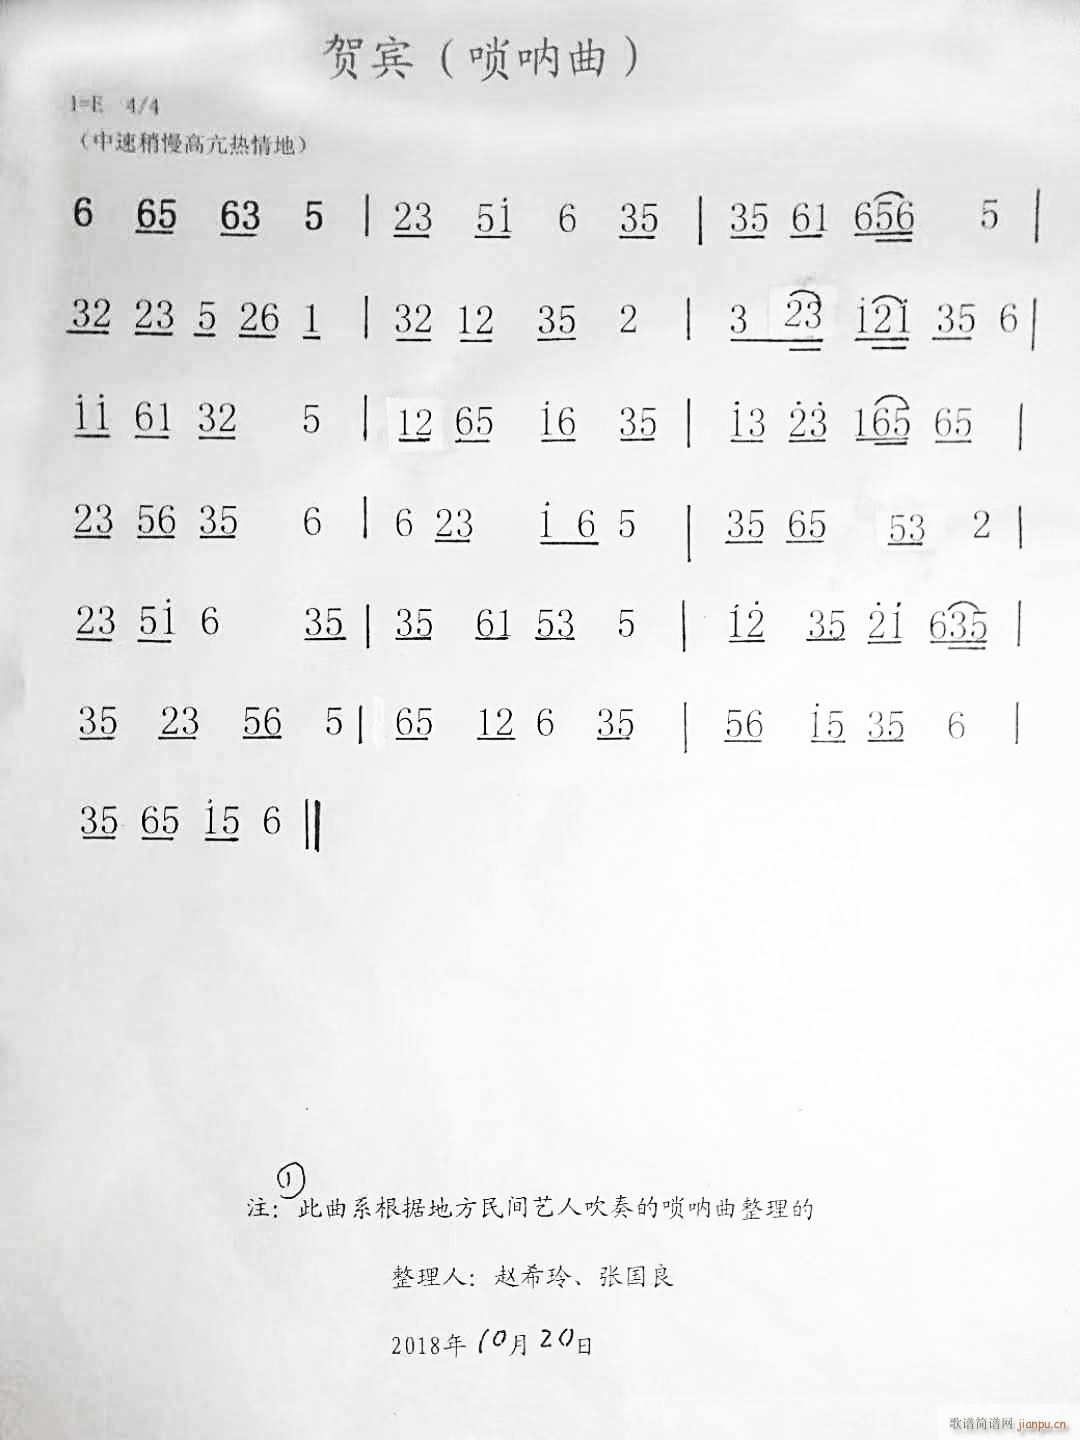 贺宾（唢呐曲）
1=E 4/4
（中速稍慢高亢热情地）
6 65 63 5 | 23 5i̇ 6 35 | 35 61 656 5 |
32 23 5 26 1 | 32 12 35 2 | 3 23 i̇2i̇ 35 6 |
i̇i̇ 61 32 5 | 12 65 i̇6 35 | i̇3 2̇3̇ 165 65 |
23 56 35 6 | 6 23 i̇ 6 5 | 35 65 53 2 |
23 5i̇ 6 35 | 35 61 53 5 | i̇2̇ 35 2̇i̇ 635 |
35 23 56 5 | 65 12 6 35 | 56 i̇5 35 6 |
35 65 i̇5 6 ‖
注：①此曲系根据地方民间艺人吹奏的唢呐曲整理的
整理人：赵希玲、张国良
2018年10月20日
歌谱简谱网 jianpu.cn